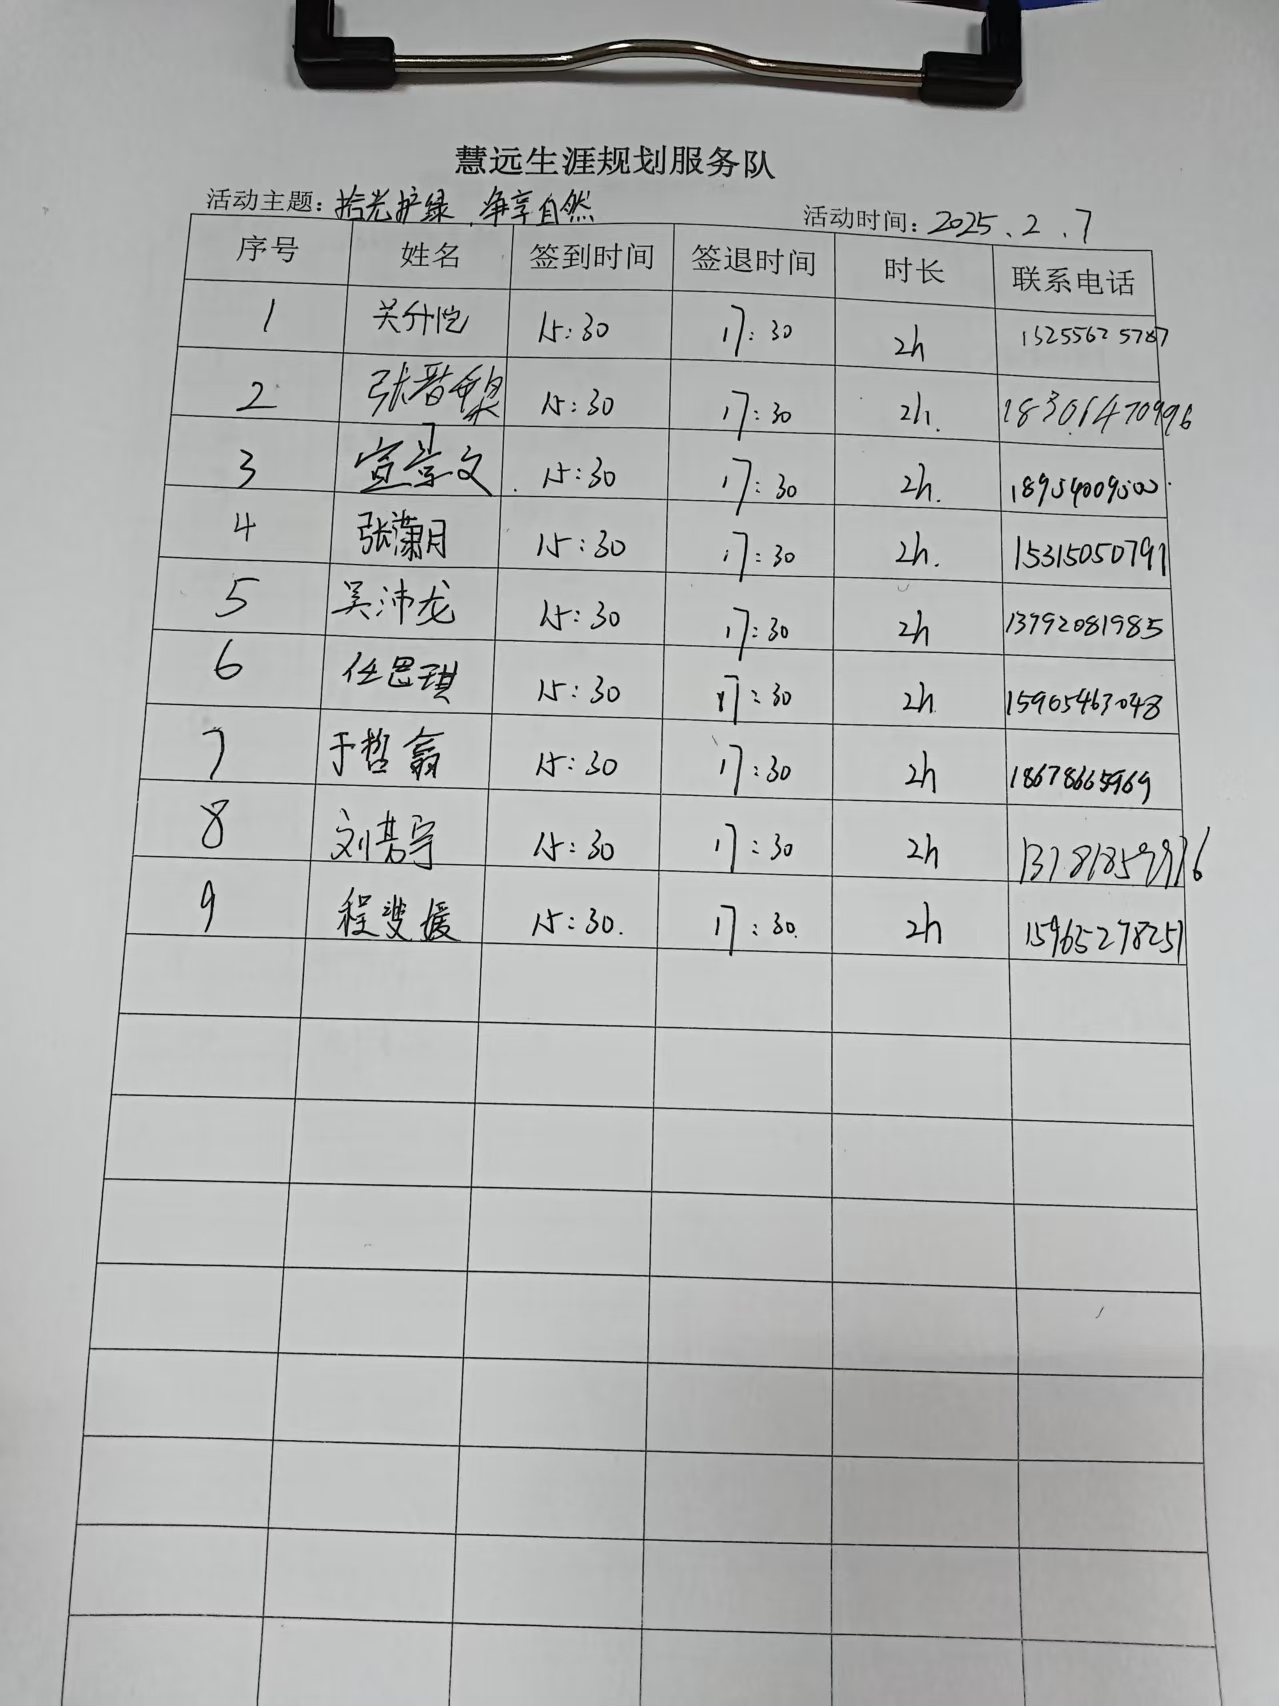 慧远生涯规划服务队
活动主题：拾光护绿 净享自然 活动时间：2025.2.7
序号 姓名 签到时间 签退时间 时长 联系电话
1 关升恺 15:30 17:30 2h 15255625787
2 张晋 15:30 17:30 2h. 18306470996
3 宣景文 15:30 17:30 2h. 18954009500
4 张潇月 15:30 17:30 2h. 15315050791
5 吴沛龙 15:30 17:30 2h 13792081985
6 任思琪 15:30 17:30 2h 15965463048
7 于哲翕 15:30 17:30 2h 18678665969
8 刘若宇 15:30 17:30 2h
9 程雯媛 15:30. 17:30. 2h 15965278251